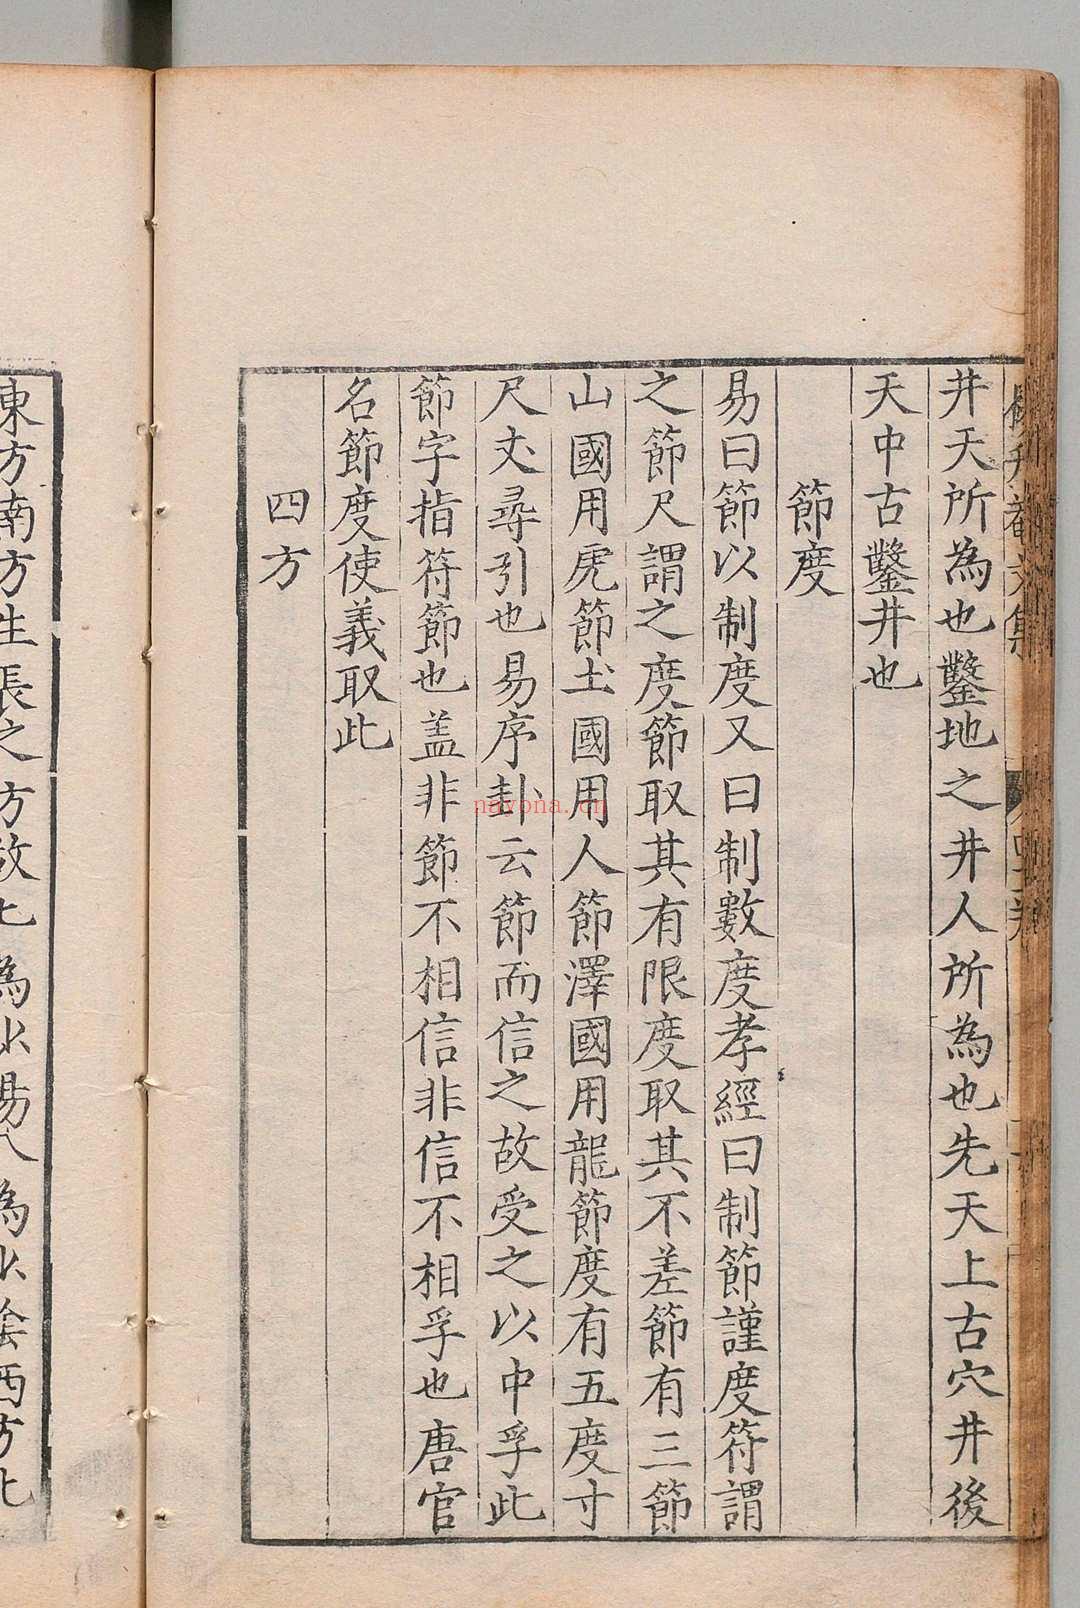 井天所為也鑿地之井人所為也先天上古穴井後
天中古鑿井也
節度
易曰節以制度又曰制數度孝經曰制節謹度符謂
之節尺謂之度節取其有限度取其不差節有三節
山國用虎節土國用人節澤國用龍節度有五度寸
尺丈尋引也易序卦云節而信之故受之以中孚此
節字指符節也盖非節不相信非信不相孚也唐官
名節度使義取此
四方
東方南方生長之方故七為少陽八為少陰西方北
nayona.cn